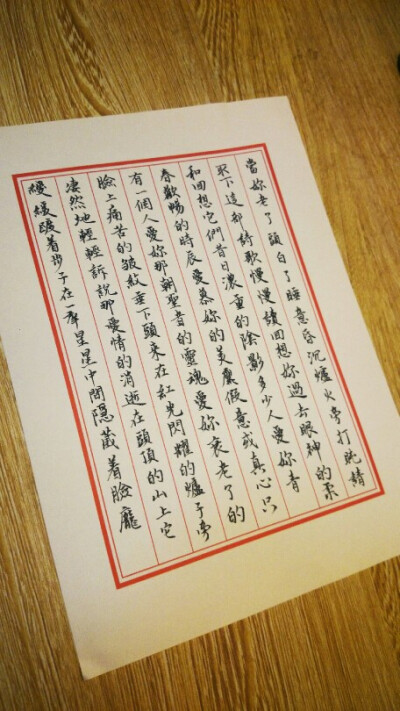 當妳老了頭白了睡意昏沉爐火旁打盹請
取下這部詩歌慢慢讀回想妳過去眼神的柔
和回想它們昔日濃重的陰影多少人愛妳青
春歡暢的時辰愛慕妳的美麗假意或真心只
有一個人愛妳那朝聖者的靈魂愛妳衰老了的
臉上痛苦的皺紋垂下頭來在紅光閃耀的爐子旁
淒然地輕輕訴說那愛情的消逝在頭頂的山上它
緩緩踱着步子在一羣星星中間隱藏着臉龐